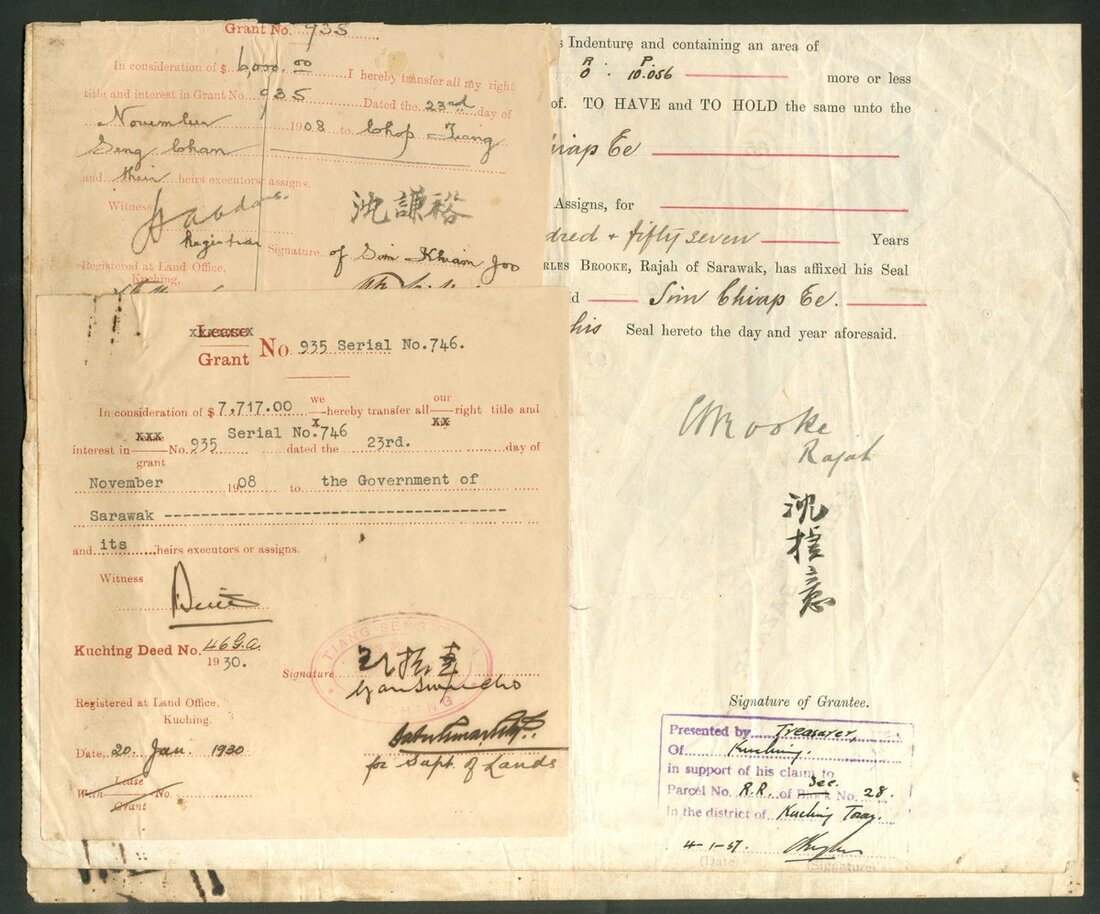 Grant No. 935
In consideration of $ 6,000.00 I hereby transfer all my right
title and interest in Grant No. 935 Dated the 23rd day of
November 1908 to Chop Tiang
Seng Chan
and their heirs executors assigns.
Witness
Registrar
沈謙裕
Signature. of Sim Khiam Joo
Registered at Land Office,
Kuching,
Lease xxxxxxx
Grant No. 935 Serial No.746.
In consideration of $ 7,717.00 we x hereby transfer all our xx right title and
interest in xxx grant No. 935 Serial No.746 dated the 23rd. day of
November 1908 to the Government of
Sarawak -----------------------------------
and its heirs executors or assigns.
Witness
Kuching Deed No. 46 G.A.
1930.
Signature
TIANG SENG
Registered at Land Office,
Kuching.
for Supt. of Lands
Date, 20 Jan. 1930
With Lease Grant No.
s Indenture and containing an area of
R. P.
0 . 10.056 more or less
of. TO HAVE and TO HOLD the same unto the
hiap Ee
Assigns, for
dred + fifty seven Years
RLES BROOKE, Rajah of Sarawak, has affixed his Seal
d Sim Chiap Ee.
his Seal hereto the day and year aforesaid.
CBrooke
Rajah
Signature of Grantee.
Presented by Treasurer,
Of Kuching.
in support of his claim to
Parcel No. R.R. of Block Sec. No. 28.
In the district of Kuching Town.
4-1-57.
(Date) (Signature)